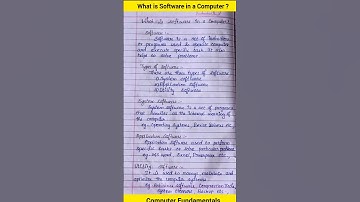 What is Software in a Computer ?
What is Software in a Computer?
Software :-
Software is a set of instructions
or programs used to operate computer
and execute specific task. It also
helps to solve problems.
Types of Software :-
There are three types of Software
1) System Software
2) Application Software
3) Utility Software
System Software :-
System Software is a set of programs
that handles the internal working of
the computer.
eg. Operating System, Device Drivers etc.
Application Software :-
Application Software used to perform
specific tasks or solve particular problems
eg. MS Word, Excel, Powerpoint etc.
Utility Software :-
It is used to manage, maintain and
optimize the computer system.
eg. Antivirus Software, Compression Tools,
System Cleaners, Backup etc.
Computer Fundamentals